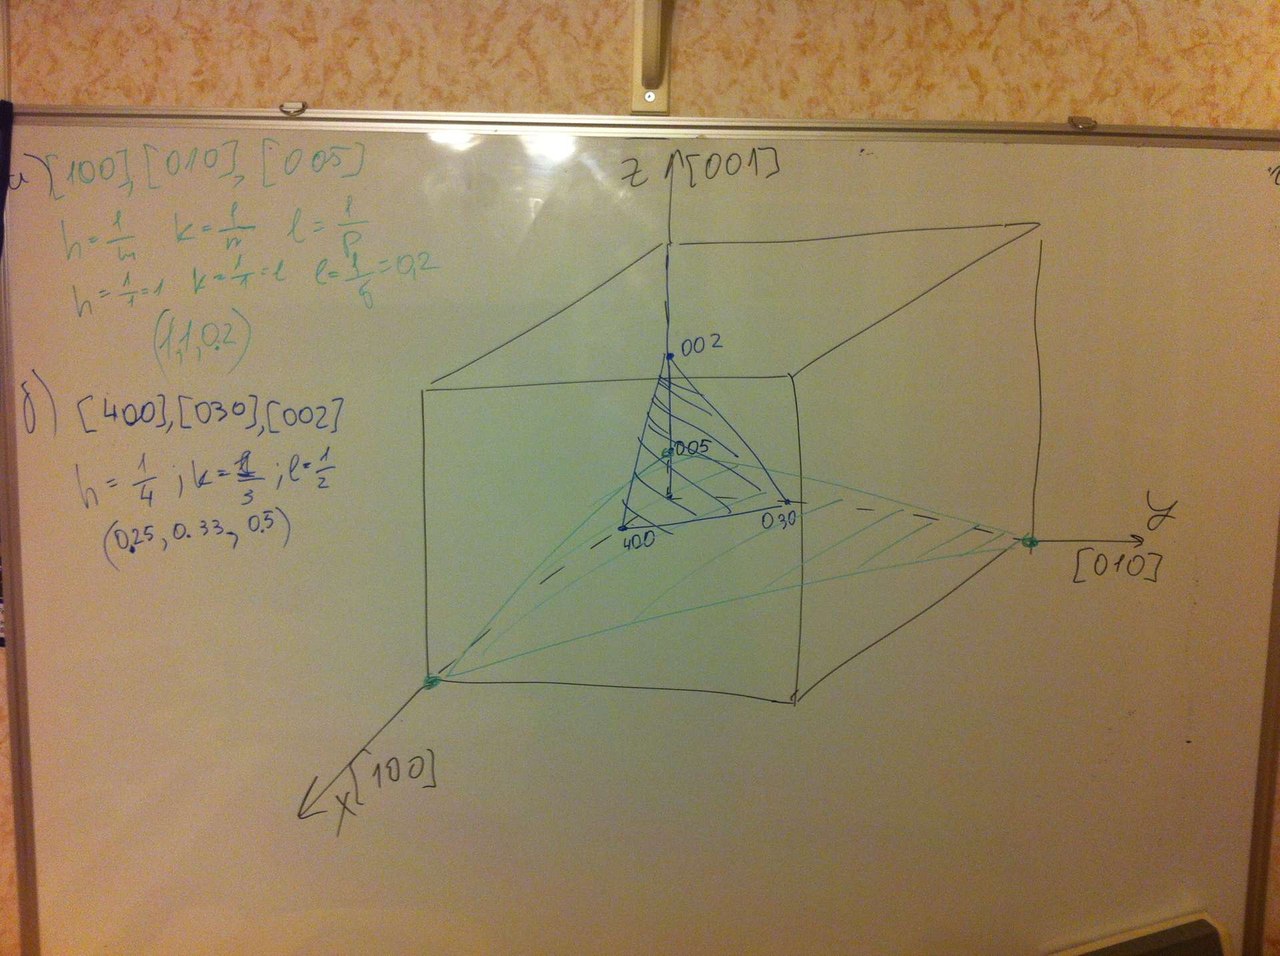 а) [100], [010], [005]
h = 1/m k = 1/n l = 1/p
h = 1/1 = 1 k = 1/1 = 1 l = 1/5 = 0,2
(1,1,0.2)
б) [400], [030], [002]
h = 1/4 ; k = 1/3 ; l = 1/2
(0.25, 0.33, 0.5)
Z [001]
002
005
030
400
y
[010]
[100]
X